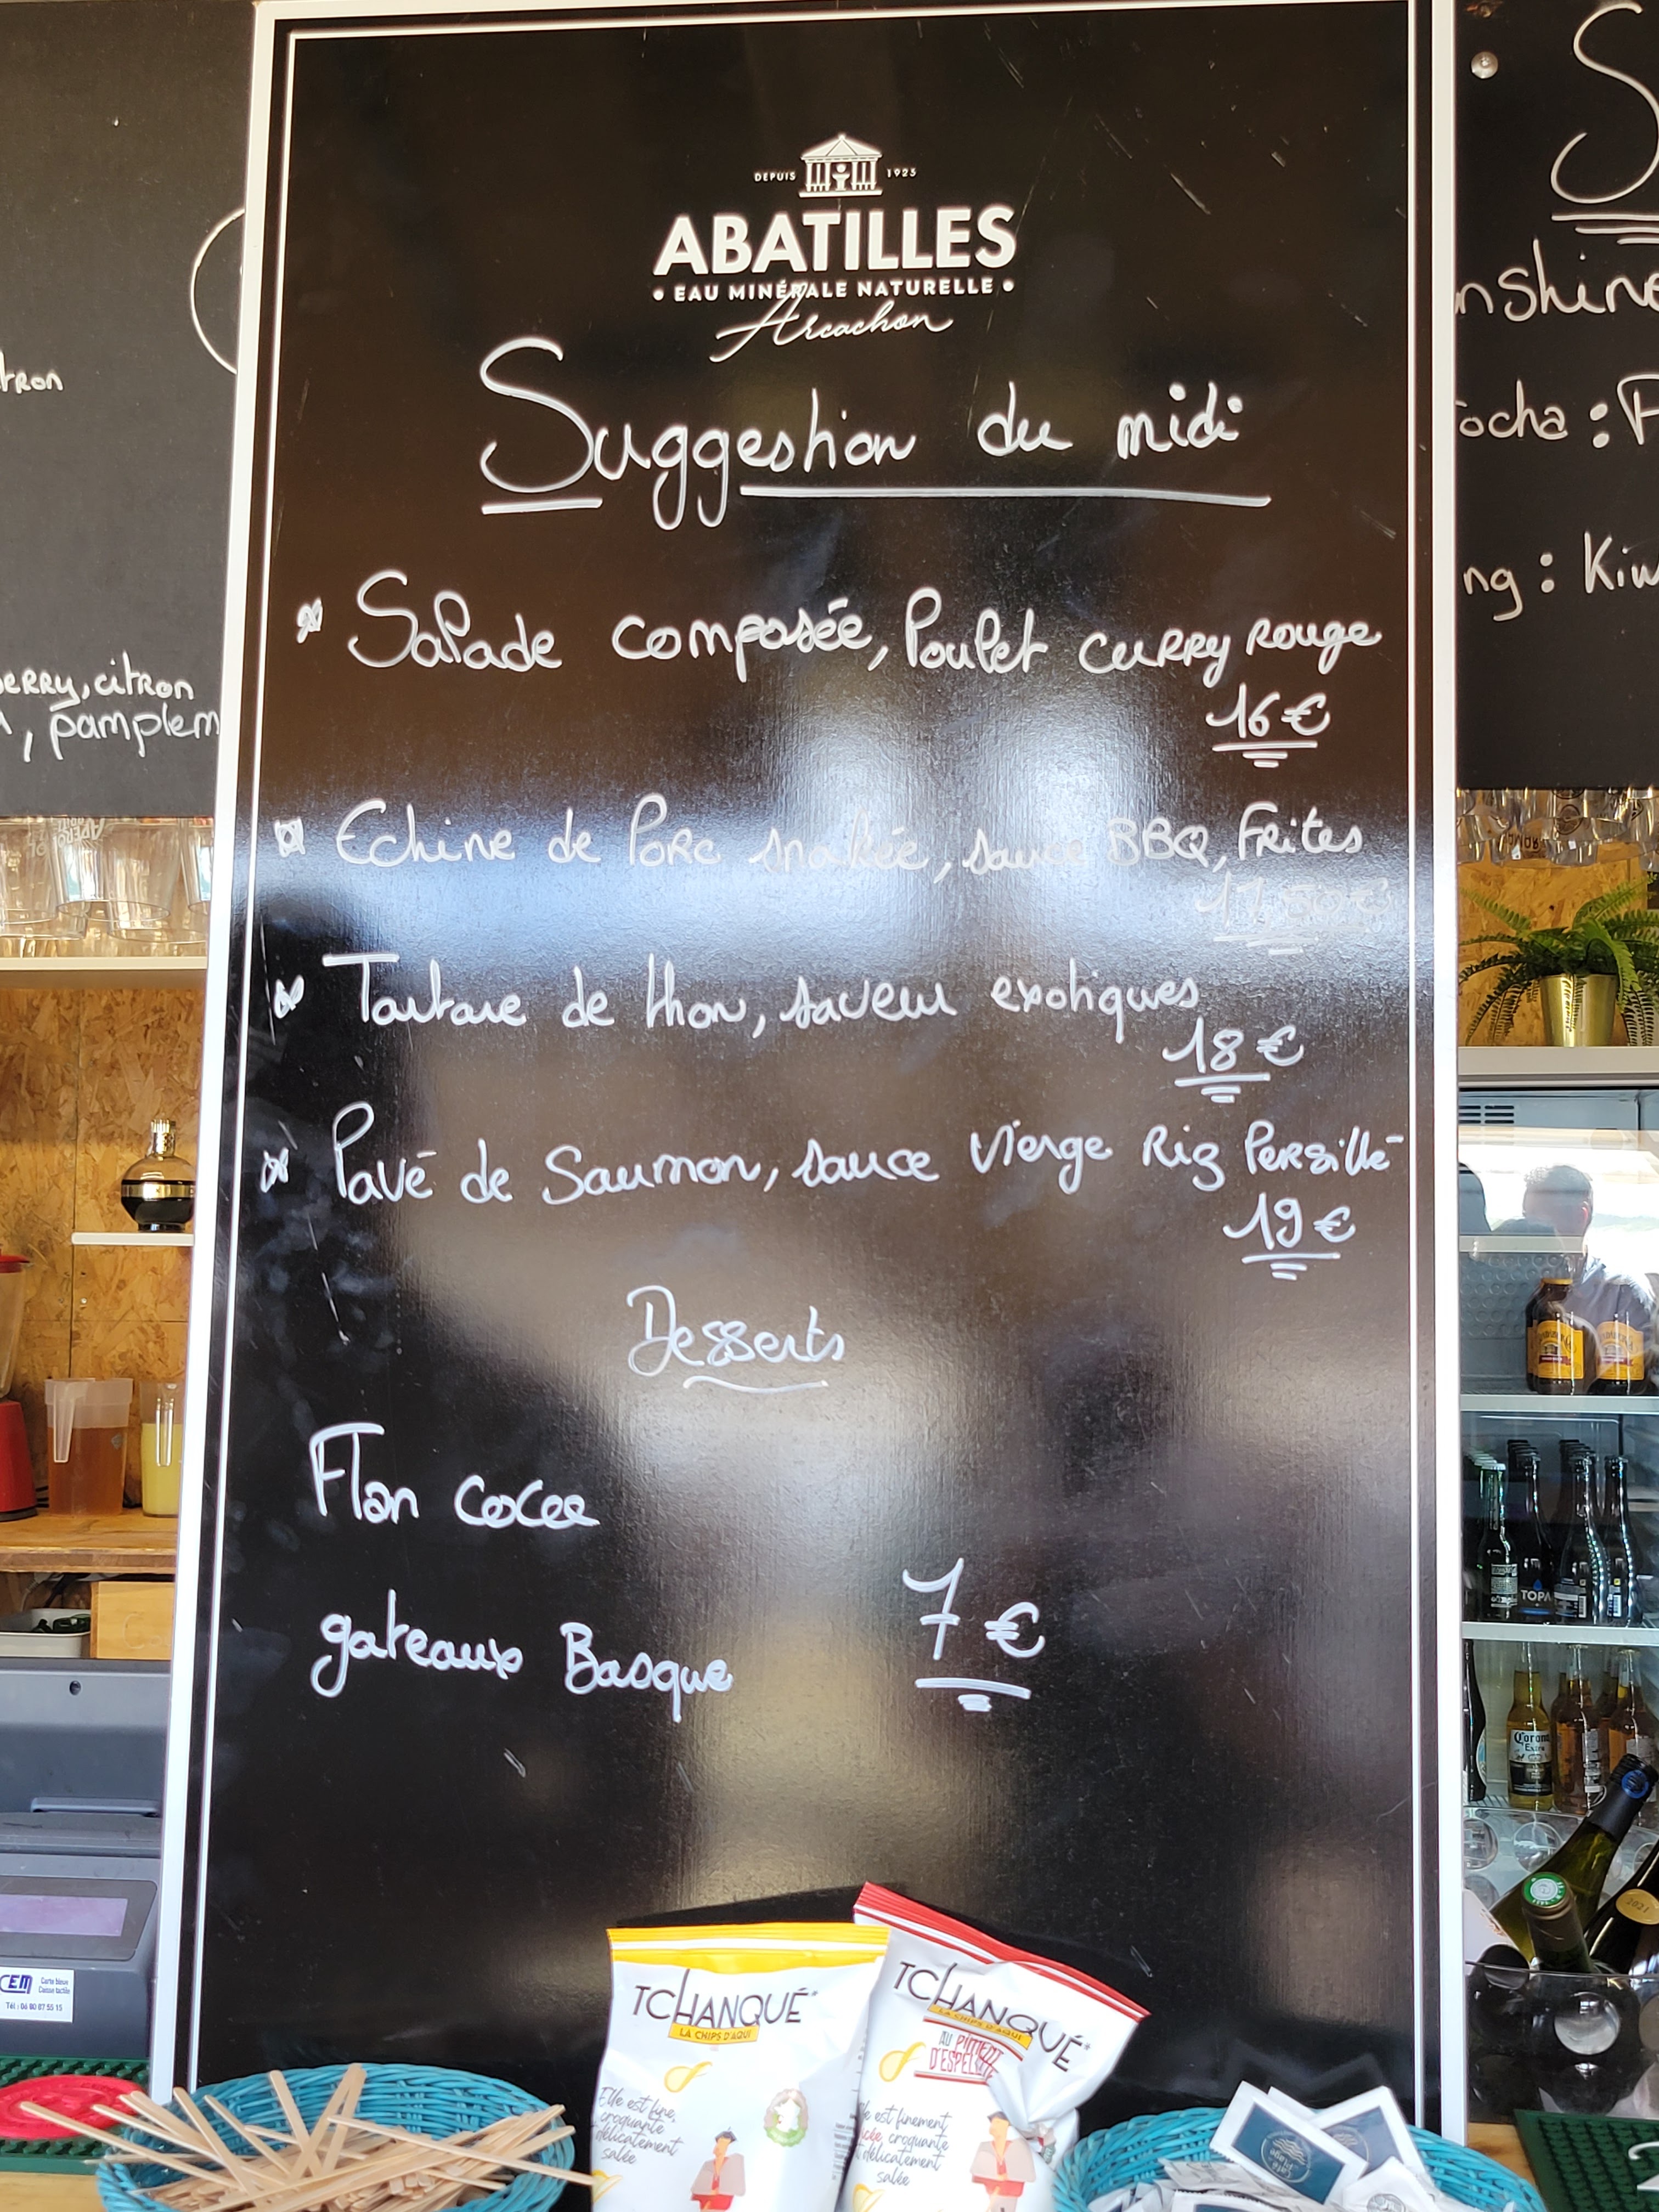 DEPUIS 1925
ABATILLES
• EAU MINÉRALE NATURELLE •
Arcachon
Suggestion du midi
Salade composée, Poulet curry rouge
16€
Echine de Porc snakée, sauce BBQ, Frites
17.50€
Tartare de thon, saveur exotiques
18€
Pavé de Saumon, sauce vierge Riz Persillé
19€
Desserts
Flan coco
gateaux Basque
7€
tron
erry, citron
, pamplem
S
nshine
ocha : P
ng : Kiw
TOPA
Corona
Extra
2021
CEM
Carte bleue
Caisse tactile
TCHANQUÉ
LA CHIPS D'AQUI
Elle est fine,
croquante
délicatement
salée
TCHANQUÉ
LA CHIPS D'AQUI
AU PIMENT
D'ESPELETTE
le est finement
croquante
délicatement
salée